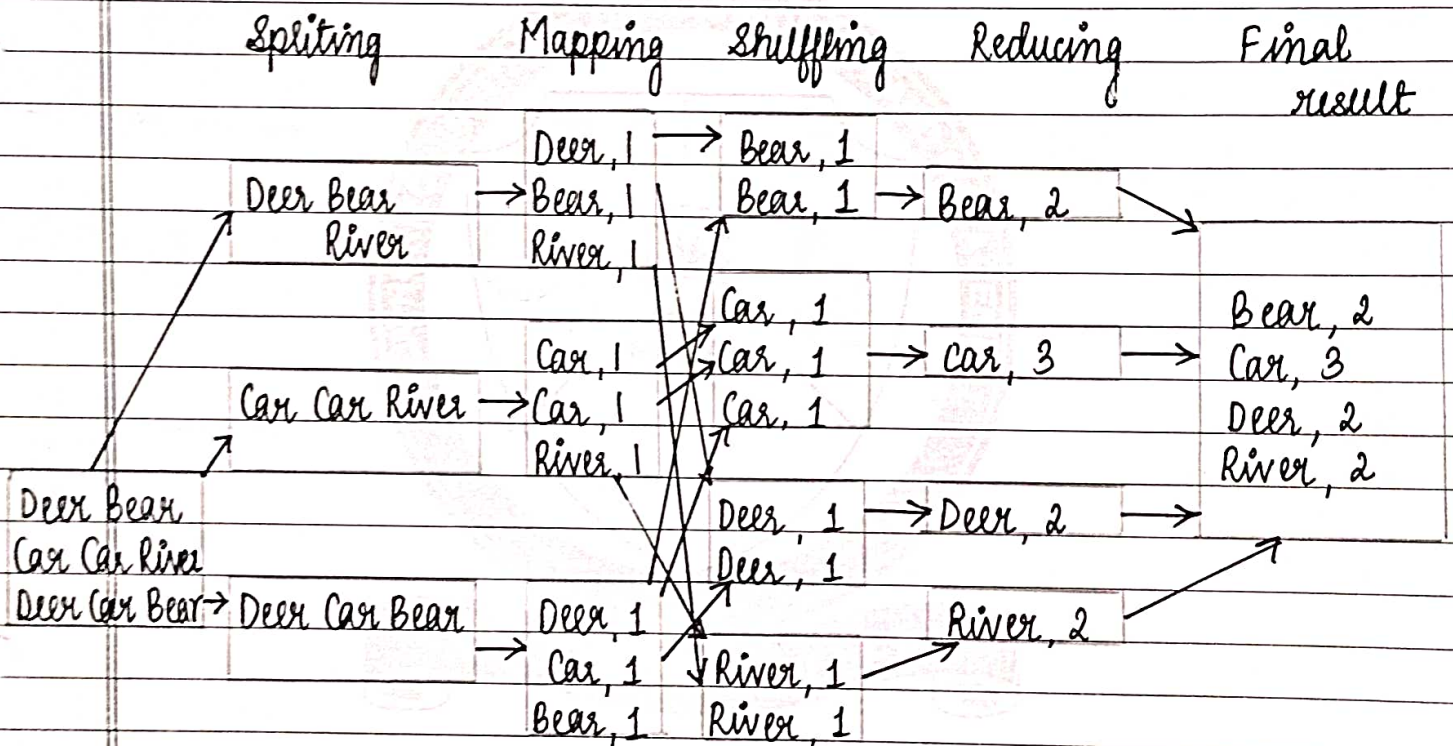 Spliting Mapping Shuffling Reducing Final
result
Deer Bear
Car Car River
Deer Car Bear
Deer Bear
River
Car Car River
Deer Car Bear
Deer, 1
Bear, 1
River, 1
Car, 1
Car, 1
River, 1
Deer, 1
Car, 1
Bear, 1
Bear, 1
Bear, 1
Car, 1
Car, 1
Car, 1
Deer, 1
Deer, 1
River, 1
River, 1
Bear, 2
Car, 3
Deer, 2
River, 2
Bear, 2
Car, 3
Deer, 2
River, 2